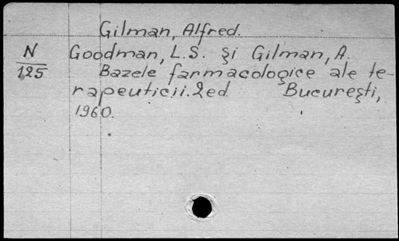 Gilman, Alfred.
N
125
Goodman, L.S. şi Gilman, A.
Bazele farmacologice ale te-
rapeuticii. 2ed Bucureşti,
1960.